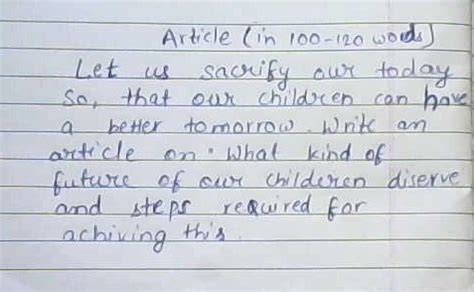 Article (in 100-120 words)
Let us sacrify our today
So, that our children can have
a better tomorrow. Write an
article on. What kind of
future of our childeren diserve
and steps required for
achiving this.